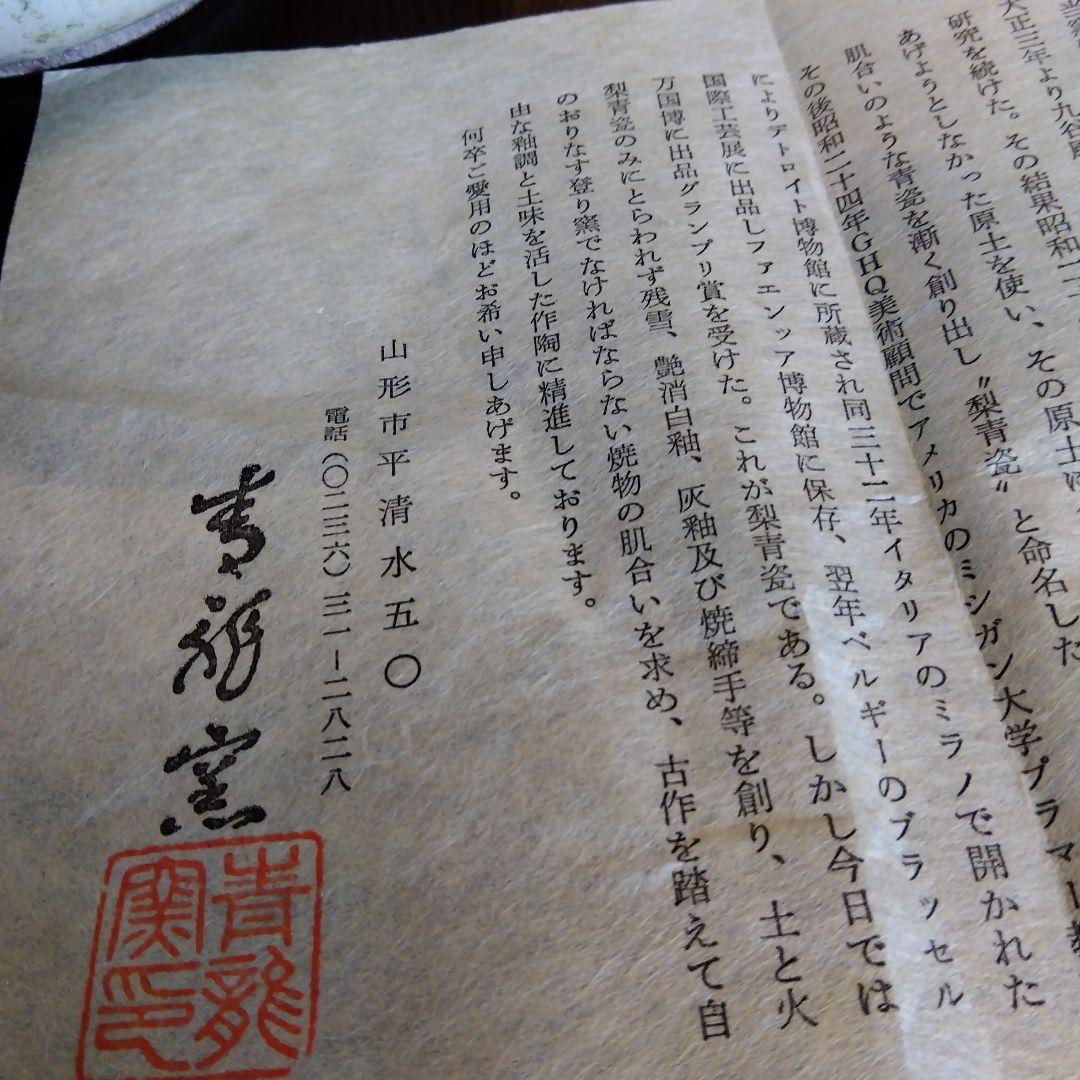 大正三年より九谷
研究を続けた。その結果昭和二十
あげようとしなかった原土を使い、その原土は、
肌合いのような青瓷を漸く創り出し〝梨青瓷〟と命名した
その後昭和二十四年GHQ美術顧問でアメリカのミシガン大学プラマー教
によりデトロイト博物館に所蔵され同三十二年イタリアのミラノで開かれた
国際工芸展に出品しファエンツア博物館に保存、翌年ベルギーのブラッセル
万国博に出品グランプリ賞を受けた。これが梨青瓷である。しかし今日では
梨青瓷のみにとらわれず残雪、艶消白釉、灰釉及び焼締手等を創り、土と火
のおりなす登り窯でなければならない焼物の肌合いを求め、古作を踏えて自
由な釉調と土味を活した作陶に精進しております。
何卒ご愛用のほどお希い申しあげます。
山形市平清水五〇
電話(〇二三六)三一-二八二八
青龍窯
青龍
窯印